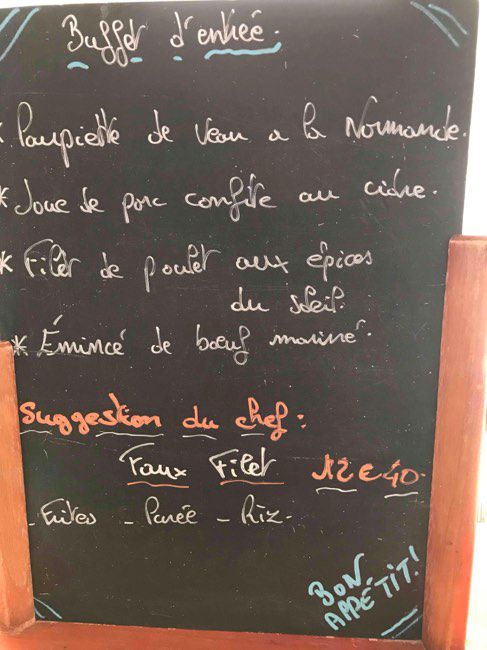 Buffet d'entrée.
* Paupiette de veau a la Normande.
* Joue de porc confite au cidre.
* Filet de poulet aux épices
du soleil.
* Émincé de bœuf mariné.
Suggestion du chef :
Faux Filet 12€40.
- Frites - Purée - Riz.
BON
APPÉTIT!